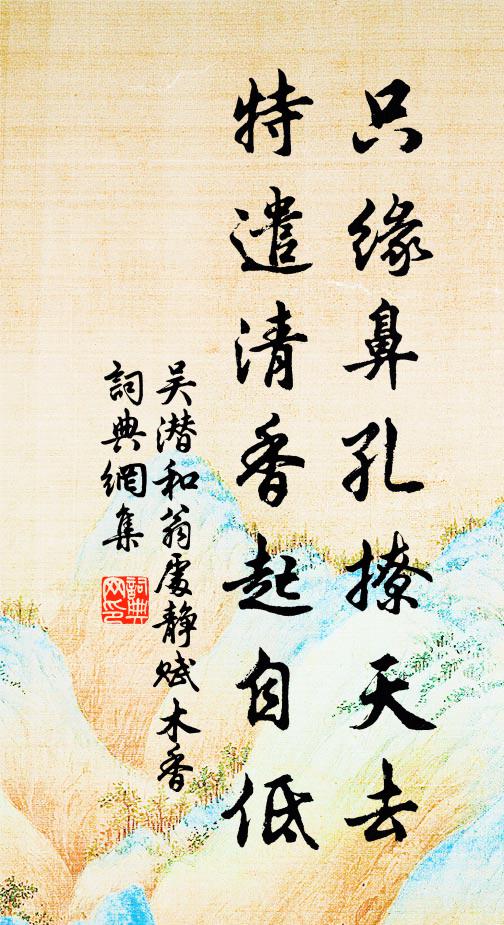 只缘鼻孔撩天去
特遣清香起自低
吴潜和翁处静赋木香
詞典網集
詞典
网印